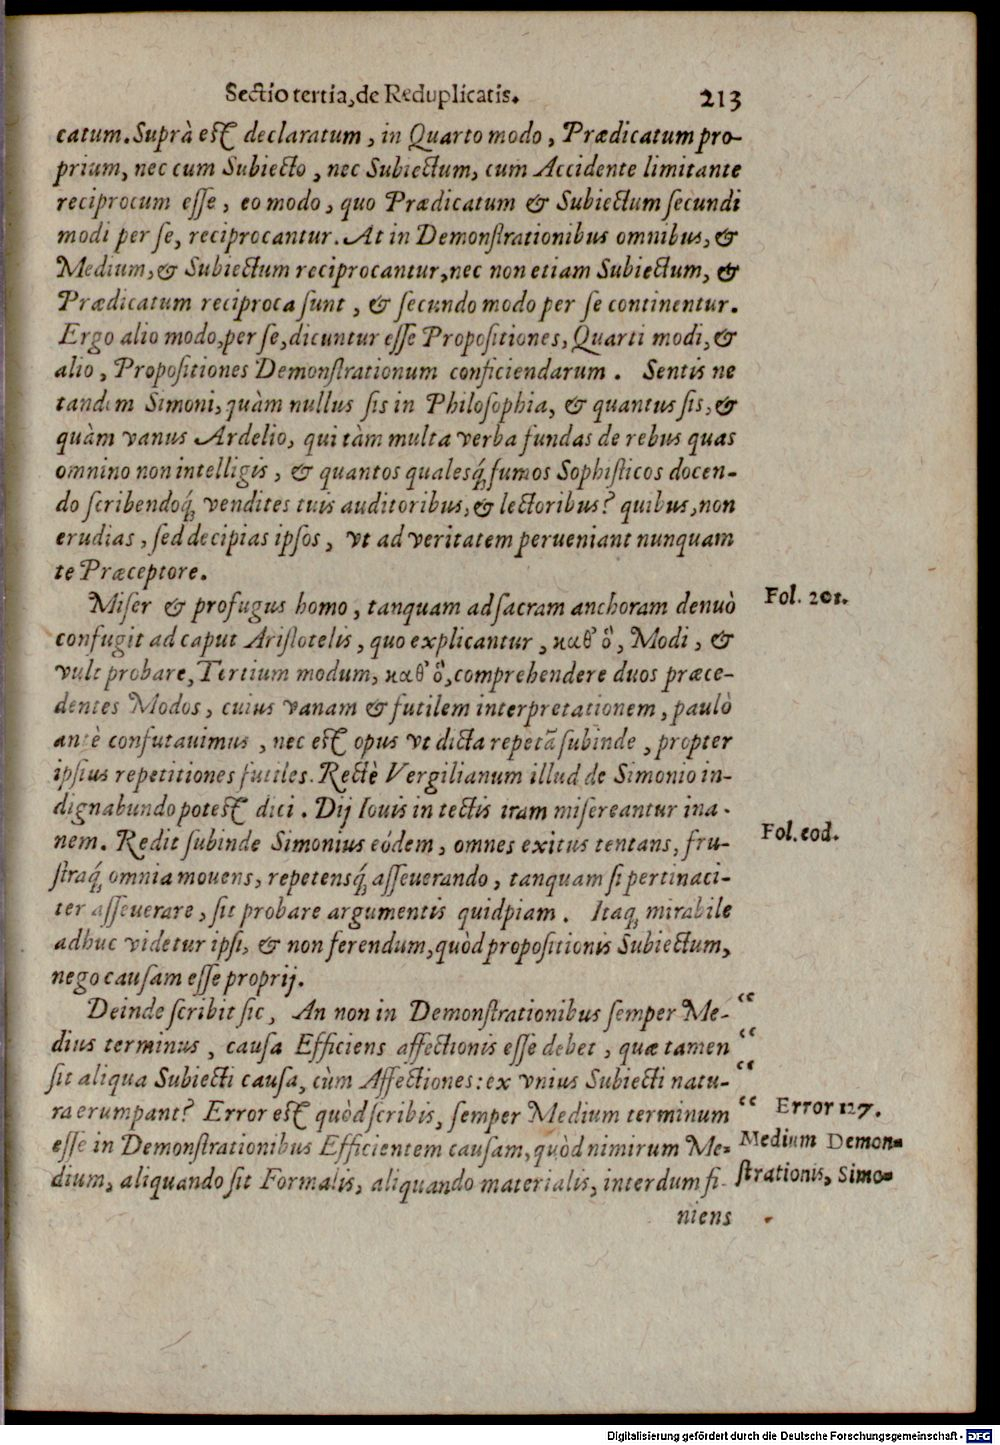 Sectio tertia, de Reduplicatis. 213
catum. Suprà est declaratum, in Quarto modo, Prædicatum pro-
prium, nec cum Subiecto, nec Subiectum, cum Accidente limitante
reciprocum eſſe, eo modo, quo Prædicatum & Subiectum ſecundi
modi per ſe, reciprocantur. At in Demonſtrationibus omnibus, &
Medium, & Subiectum reciprocantur, nec non etiam Subiectum, &
Prædicatum reciproca ſunt, & ſecundo modo per ſe continentur.
Ergo alio modo, per ſe, dicuntur eſſe Propoſitiones, Quarti modi, &
alio, Propoſitiones Demonſtrationum conficiendarum. Sentis ne
tandem Simoni, quàm nullus ſis in Philoſophia, & quantus ſis, &
quàm vanus Ardelio, qui tàm multa verba fundas de rebus quas
omnino non intelligis, & quantos qualesq́; fumos Sophiſticos docen-
do ſcribendoq́; vendites tuis auditoribus, & lectoribus? quibus, non
erudias, ſed decipias ipſos, vt ad veritatem perueniant nunquam
te Præceptore.
Miſer & profugus homo, tanquam ad ſacram anchoram denuò Fol. 201.
confugit ad caput Ariſtotelis, quo explicantur, καθ᾽ ὃ, Modi, &
vult probare, Tertium modum, καθ᾽ ὃ, comprehendere duos præce-
dentes Modos, cuius vanam & futilem interpretationem, paulò
antè confutauimus, nec est opus vt dicta repetã ſubinde, propter
ipſius repetitiones futiles. Rectè Vergilianum illud de Simonio in-
dignabundo potest dici. Dij Iouis in tectis iram miſereantur ina-
nem. Redit ſubinde Simonius eódem, omnes exitus tentans, fru- Fol. eod.
ſtraq́; omnia mouens, repetensq́; aſſeuerando, tanquam ſi pertinaci-
ter aſſeuerare, ſit probare argumentis quidpiam. Itaq; mirabile
adhuc videtur ipſi, & non ferendum, quòd propoſitionis Subiectum,
nego cauſam eſſe proprij.
Deinde ſcribit ſic, An non in Demonſtrationibus ſemper Me- “
dius terminus, cauſa Efficiens affectionis eſſe debet, quæ tamen “
ſit aliqua Subiecti cauſa, cùm Affectiones: ex vnius Subiecti natu- “
ra erumpant? Error est quòd ſcribis, ſemper Medium terminum “ Error 127.
eſſe in Demonſtrationibus Efficientem cauſam, quòd nimirum Me- Medium Demon-
dium, aliquando ſit Formalis, aliquando materialis, interdum fi- ſtrationis, Simo-
niens
Digitalisierung gefördert durch die Deutsche Forschungsgemeinschaft - DFG